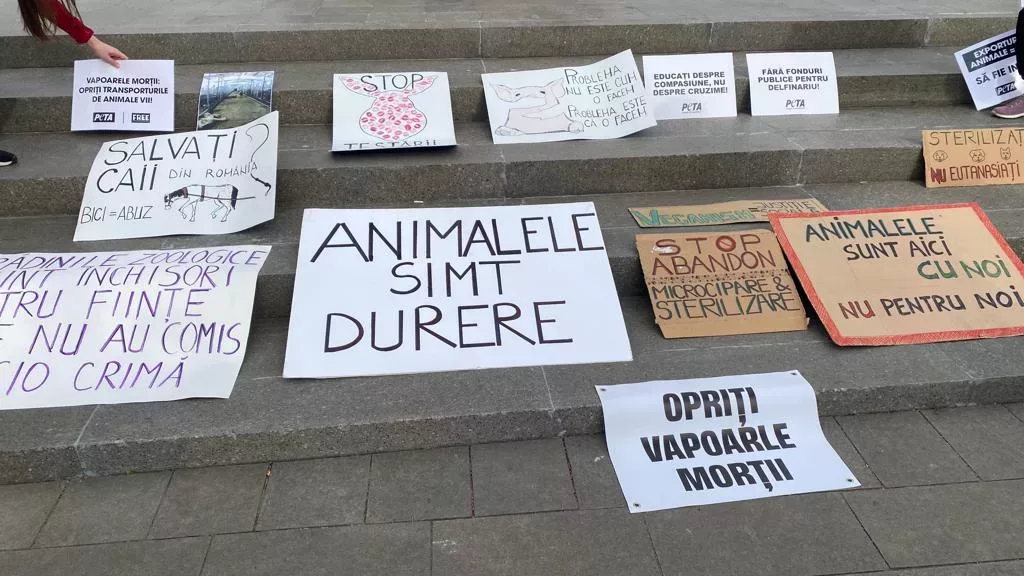 VAPOARELE MORȚII:
OPRIȚI TRANSPORTURILE
DE ANIMALE VII!
PETA
FREE
STOP
TESTĂRII
PROBLEMA
NU ESTE CUM
O FACEM
PROBLEMA ESTE
CĂ O FACEM
EDUCAȚI DESPRE
COMPASIUNE, NU
DESPRE CRUZIME!
PETA
FĂRĂ FONDURI
PUBLICE PENTRU
DELFINARIU!
PETA
EXPORTUR
ANIMALE =
SĂ FIE IN
PETA
SALVAȚI
CAII DIN ROMÂNIA
BICI = ABUZ
STERILIZAȚ
NU EUTANASIAȚI
ZOOLOGICE
INT ÎNCHISORI
TRU FIINȚE
E NU AU COMIS
CIO CRIMĂ
ANIMALELE
SIMT
DURERE
VEGANISM =
STOP
ABANDON
MICROCIPARE &
STERILIZARE
ANIMALELE
SUNT AICI
CU NOI
NU PENTRU NOI
OPRIȚI
VAPOARLE
MORȚII